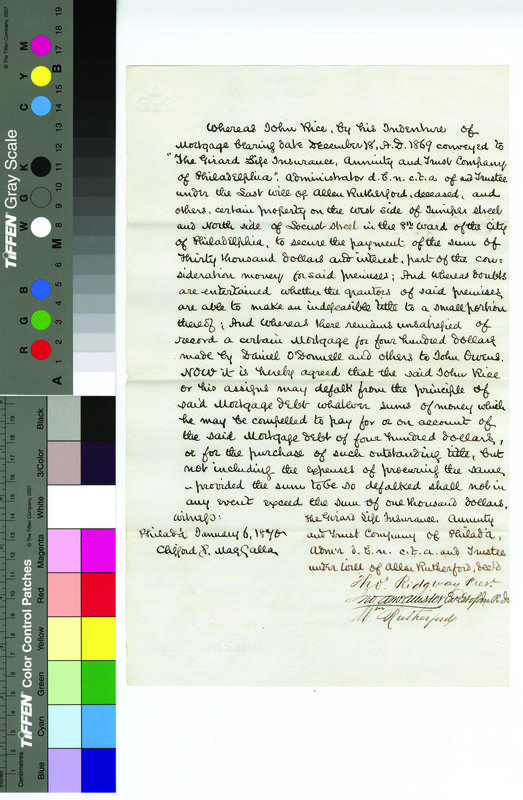 Whereas John Rice, by his Indenture of
Mortgage bearing date December 18, A.D. 1869 conveyed to
"The Girard Life Insurance, Annuity and Trust Company
of Philadelphia", Administrator d.b.n. c.t.a. of and Trustee
under the Last Will of Allen Rutherford, deceased, and
others, certain property on the West side of Juniper street
and North side of Locust street in the 8th Ward of the City
of Philadelphia, to secure the payment of the sum of
Thirty thousand dollars and interest, part of the con-
sideration money for said premises; And whereas doubts
are entertained whether the grantors of said premises
are able to make an indefeasible title to a small portion
thereof; And whereas there remains unsatisfied of
record a certain Mortgage for four hundred dollars
made by Daniel O'Donnell and others to John Owens.
NOW it is hereby agreed that the said John Rice
or his assigns may defalk from the principle of
said Mortgage debt whatever sums of money which
he may be compelled to pay for or on account of
the said Mortgage debt of four hundred dollars,
or for the purchase of such outstanding title, but
not including the expenses of procuring the same
- provided the sum to be so defalked shall not in
any event exceed the sum of one thousand dollars.
witness:
The Girard Life Insurance, Annuity
Philad'a January 6, 1870
and Trust Company of Philad'a,
Clifford P. MacCalla
Admr. d.b.n. c.t.a. and Trustee
under Will of Allen Rutherford, dec'd
Thos. Ridgway Prest.
Wm Rutherford
© The Tiffen Company, 2007
TIFFEN Gray Scale
R G B W G K C Y M
A 1 2 3 4 5 6 M 8 9 10 11 12 13 14 15 B 17 18 19
© The Tiffen Company, 2007
TIFFEN Color Control Patches
Centimetres
Blue Cyan Green Yellow Red Magenta White 3/Color Black